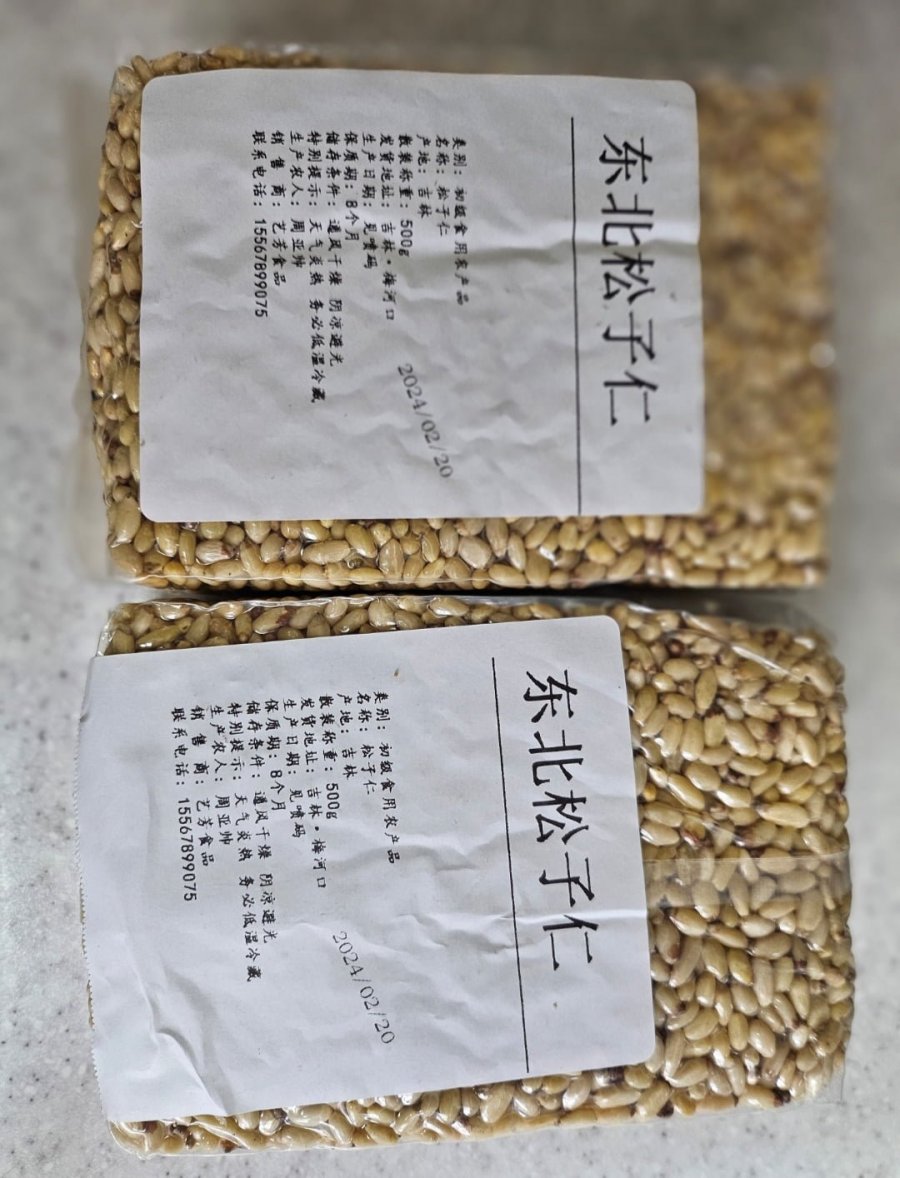 东北松子仁
类别：初级食用农产品
名称：松子仁
产地：吉林
散装称重：500g
发货地址：吉林·梅河口
生产日期：见喷码
保质期：8个月
储存条件：通风干燥 阴凉避光
特别提示：天气炎热 务必低温冷藏
生产农人：周亚帅
销售商：艺芳食品
联系电话：15567899075
2024/02/20
东北松子仁
类别：初级食用农产品
名称：松子仁
产地：吉林
散装称重：500g
发货地址：吉林·梅河口
生产日期：见喷码
保质期：8个月
储存条件：通风干燥 阴凉避光
特别提示：天气炎热 务必低温冷藏
生产农人：周亚帅
销售商：艺芳食品
联系电话：15567899075
2024/02/20